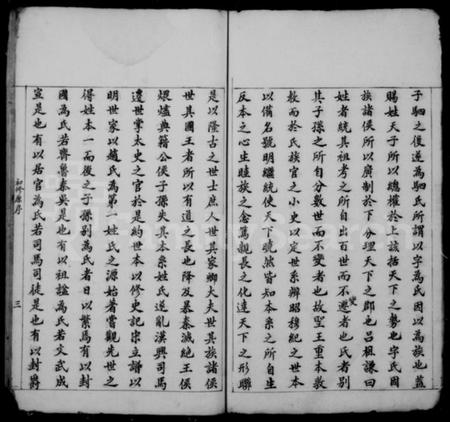 子駟之後遂為駟氏所謂以字為氏因以為族也蓋
賜姓天子所以總權於上該括天下之勢也字氏因
族諸侯所以廣制於下分理天下之郡也呂祖謙曰
姓者統其祖考之所自出百世而不遷者也氏者別
變
其子孫之所自分數世而不變者也故聖王重本敦
教而於氏族官之小史以奠世系辨昭穆紀之世本
以備名號明繼統使天下曉然皆知本系之所自生
反本之心生睦族之念篤親長之化達天下之形聯
是以隆古之世士庶人世其家卿大夫世其族諸侯
世其國王者所以有道之長也降及暴秦滅絕王侯
煨爐典籍公侯子孫失其本系姓氏遂亂漢興司馬
遷世掌太史之官於是約世本以修史記宗立譜以
明世家以趙氏為第一姓氏之源始著嘗觀先世之
得姓本一而後之子孫別為氏者日以繁焉有以封
國為氏若齊魯秦吳是也有以祖諡為氏若文武成
宣是也有以居官為氏若司馬司徒是也有以封爵
初修原序
三